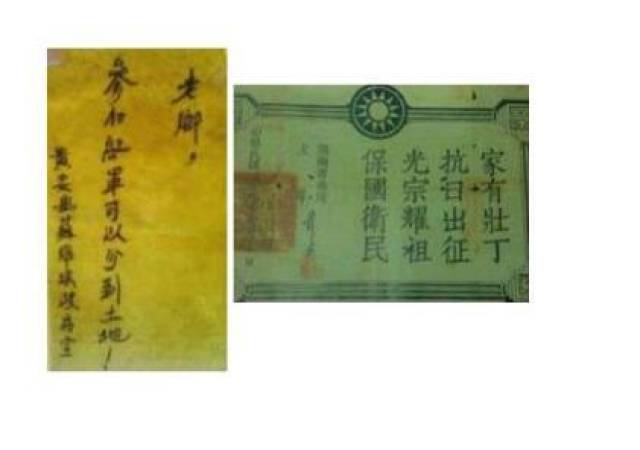 老鄉，
參加紅軍可以分到土地！
黃安縣蘇維埃政府宣
家有壯丁
抗日出征
光宗耀祖
保國衛民